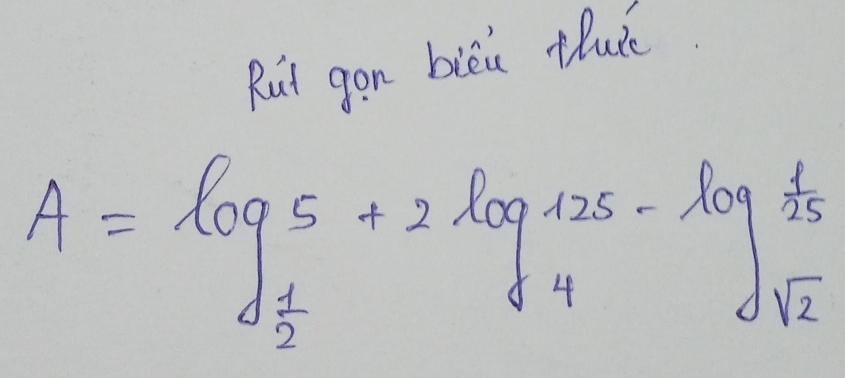 Rút gọn biểu thức.
A = log_{\frac{1}{2}} 5 + 2 log_{4} 125 - log_{\sqrt{2}} \frac{1}{25}